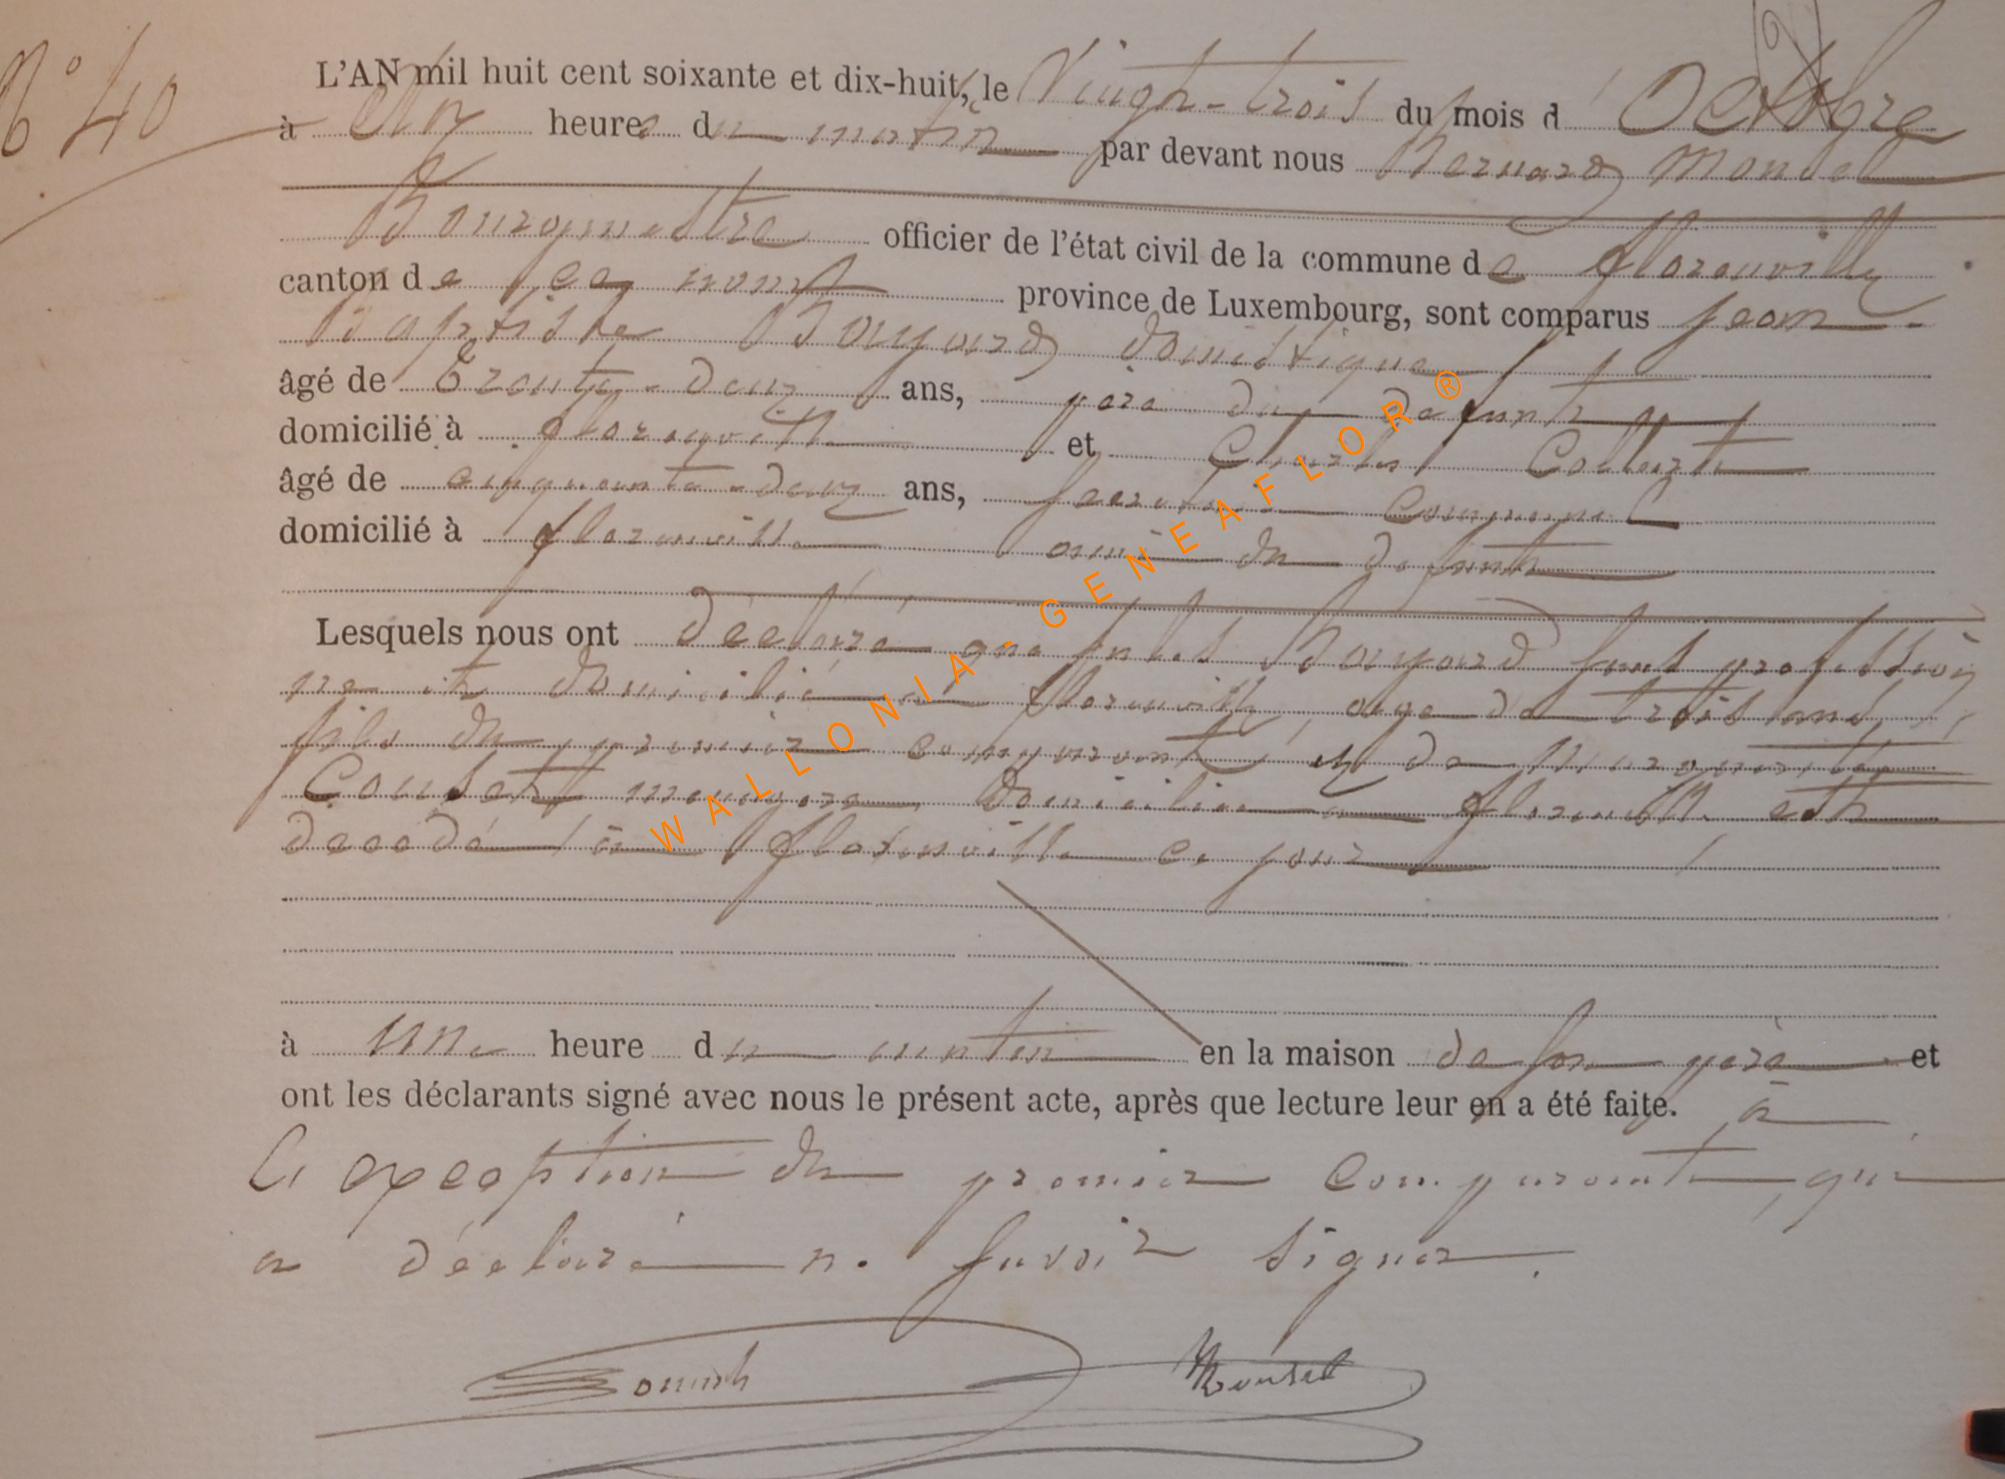 N° 40
L'AN mil huit cent soixante et dix-huit, le Vingt-trois du mois d'Octobre
à dix heures du matin par devant nous Bernard Monsel
Bourgmestre officier de l'état civil de la commune de florenville
canton de ce nom province de Luxembourg, sont comparus Jean-
Baptiste Bouyard domestique
âgé de Trente-deux ans, père du défunt
domicilié à florenville et Charles Collert
âgé de cinquante-deux ans, secrétaire communal
domicilié à florenville ami du défunt
Lesquels nous ont déclaré que Jules Bouyard sans profession
né et domicilié à florenville, âgé de trois ans,
fils du premier comparant et de Marguerite
ménagère domiciliée à florenville est
décédé à florenville ce jour
à une heure du matin en la maison de son père et
ont les déclarants signé avec nous le présent acte, après que lecture leur en a été faite. à
exception du premier comparant, qui
a déclaré ne savoir signer.
Monsel
WALLONIA - GENEAFLOR ®